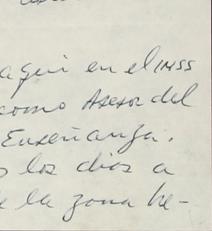 aquí en el IMSS
como Asesor del
Enseñanza.
los dias a
la zona he-